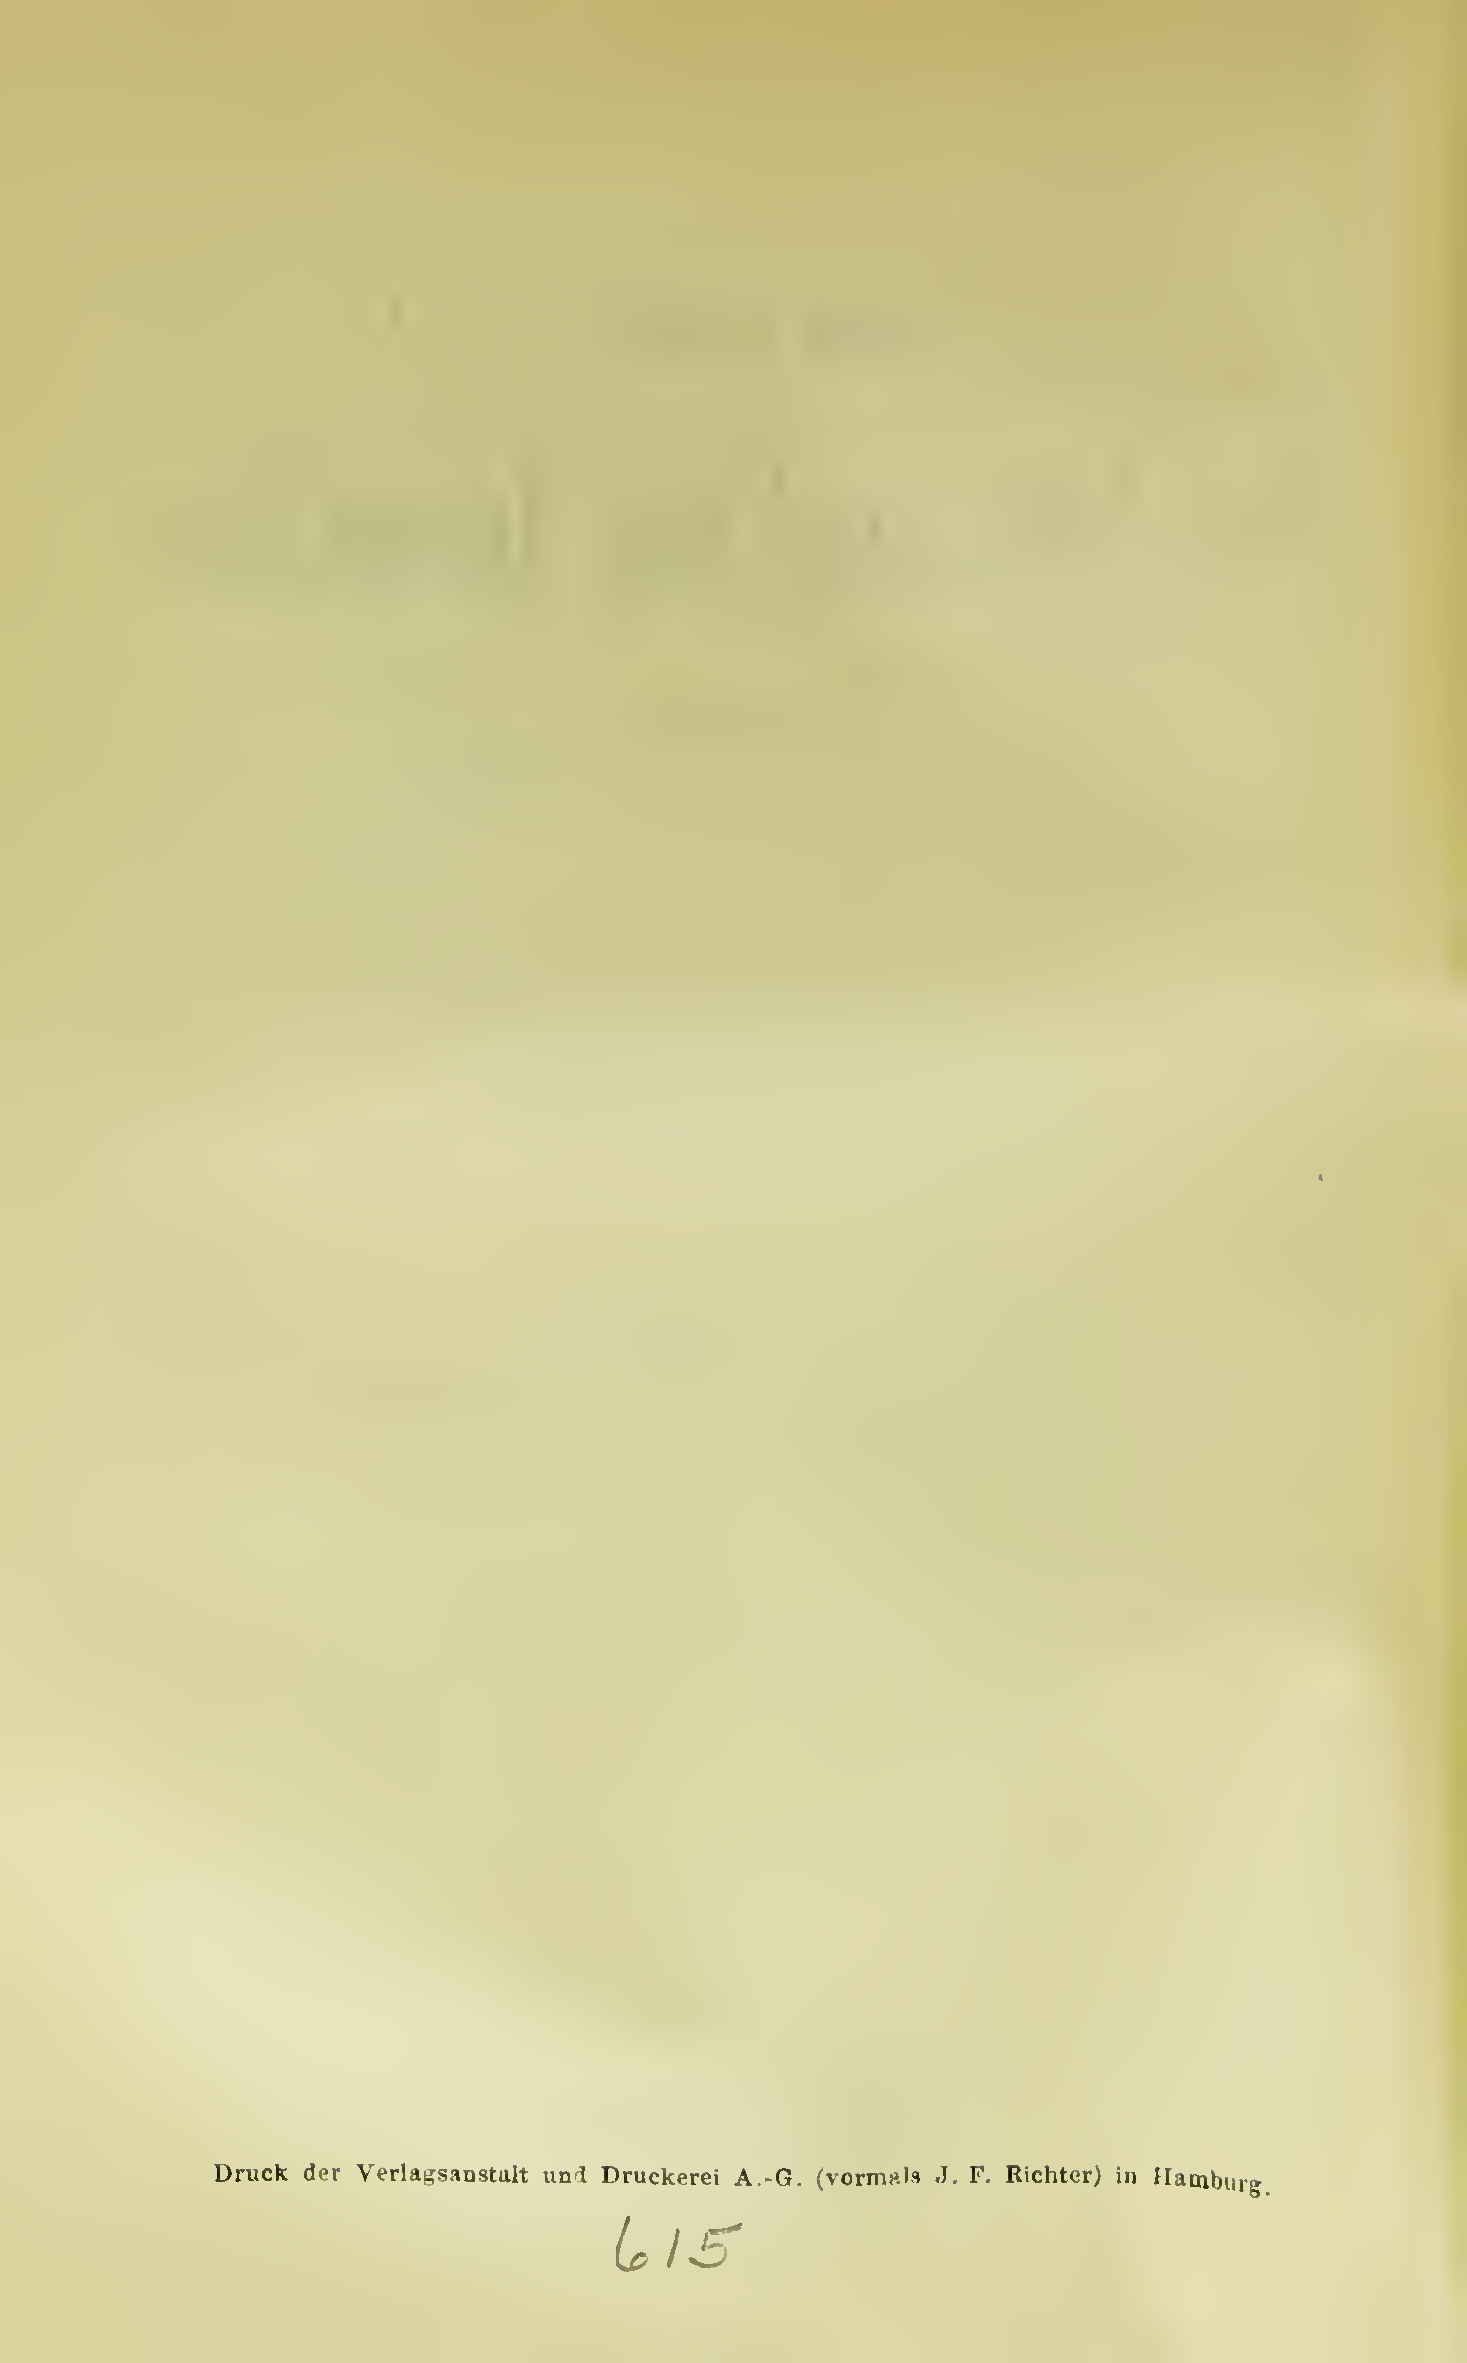 Druck der Verlagsanstalt und Druckerei A.-G. (vormals J. F. Richter) in Hamburg.
615